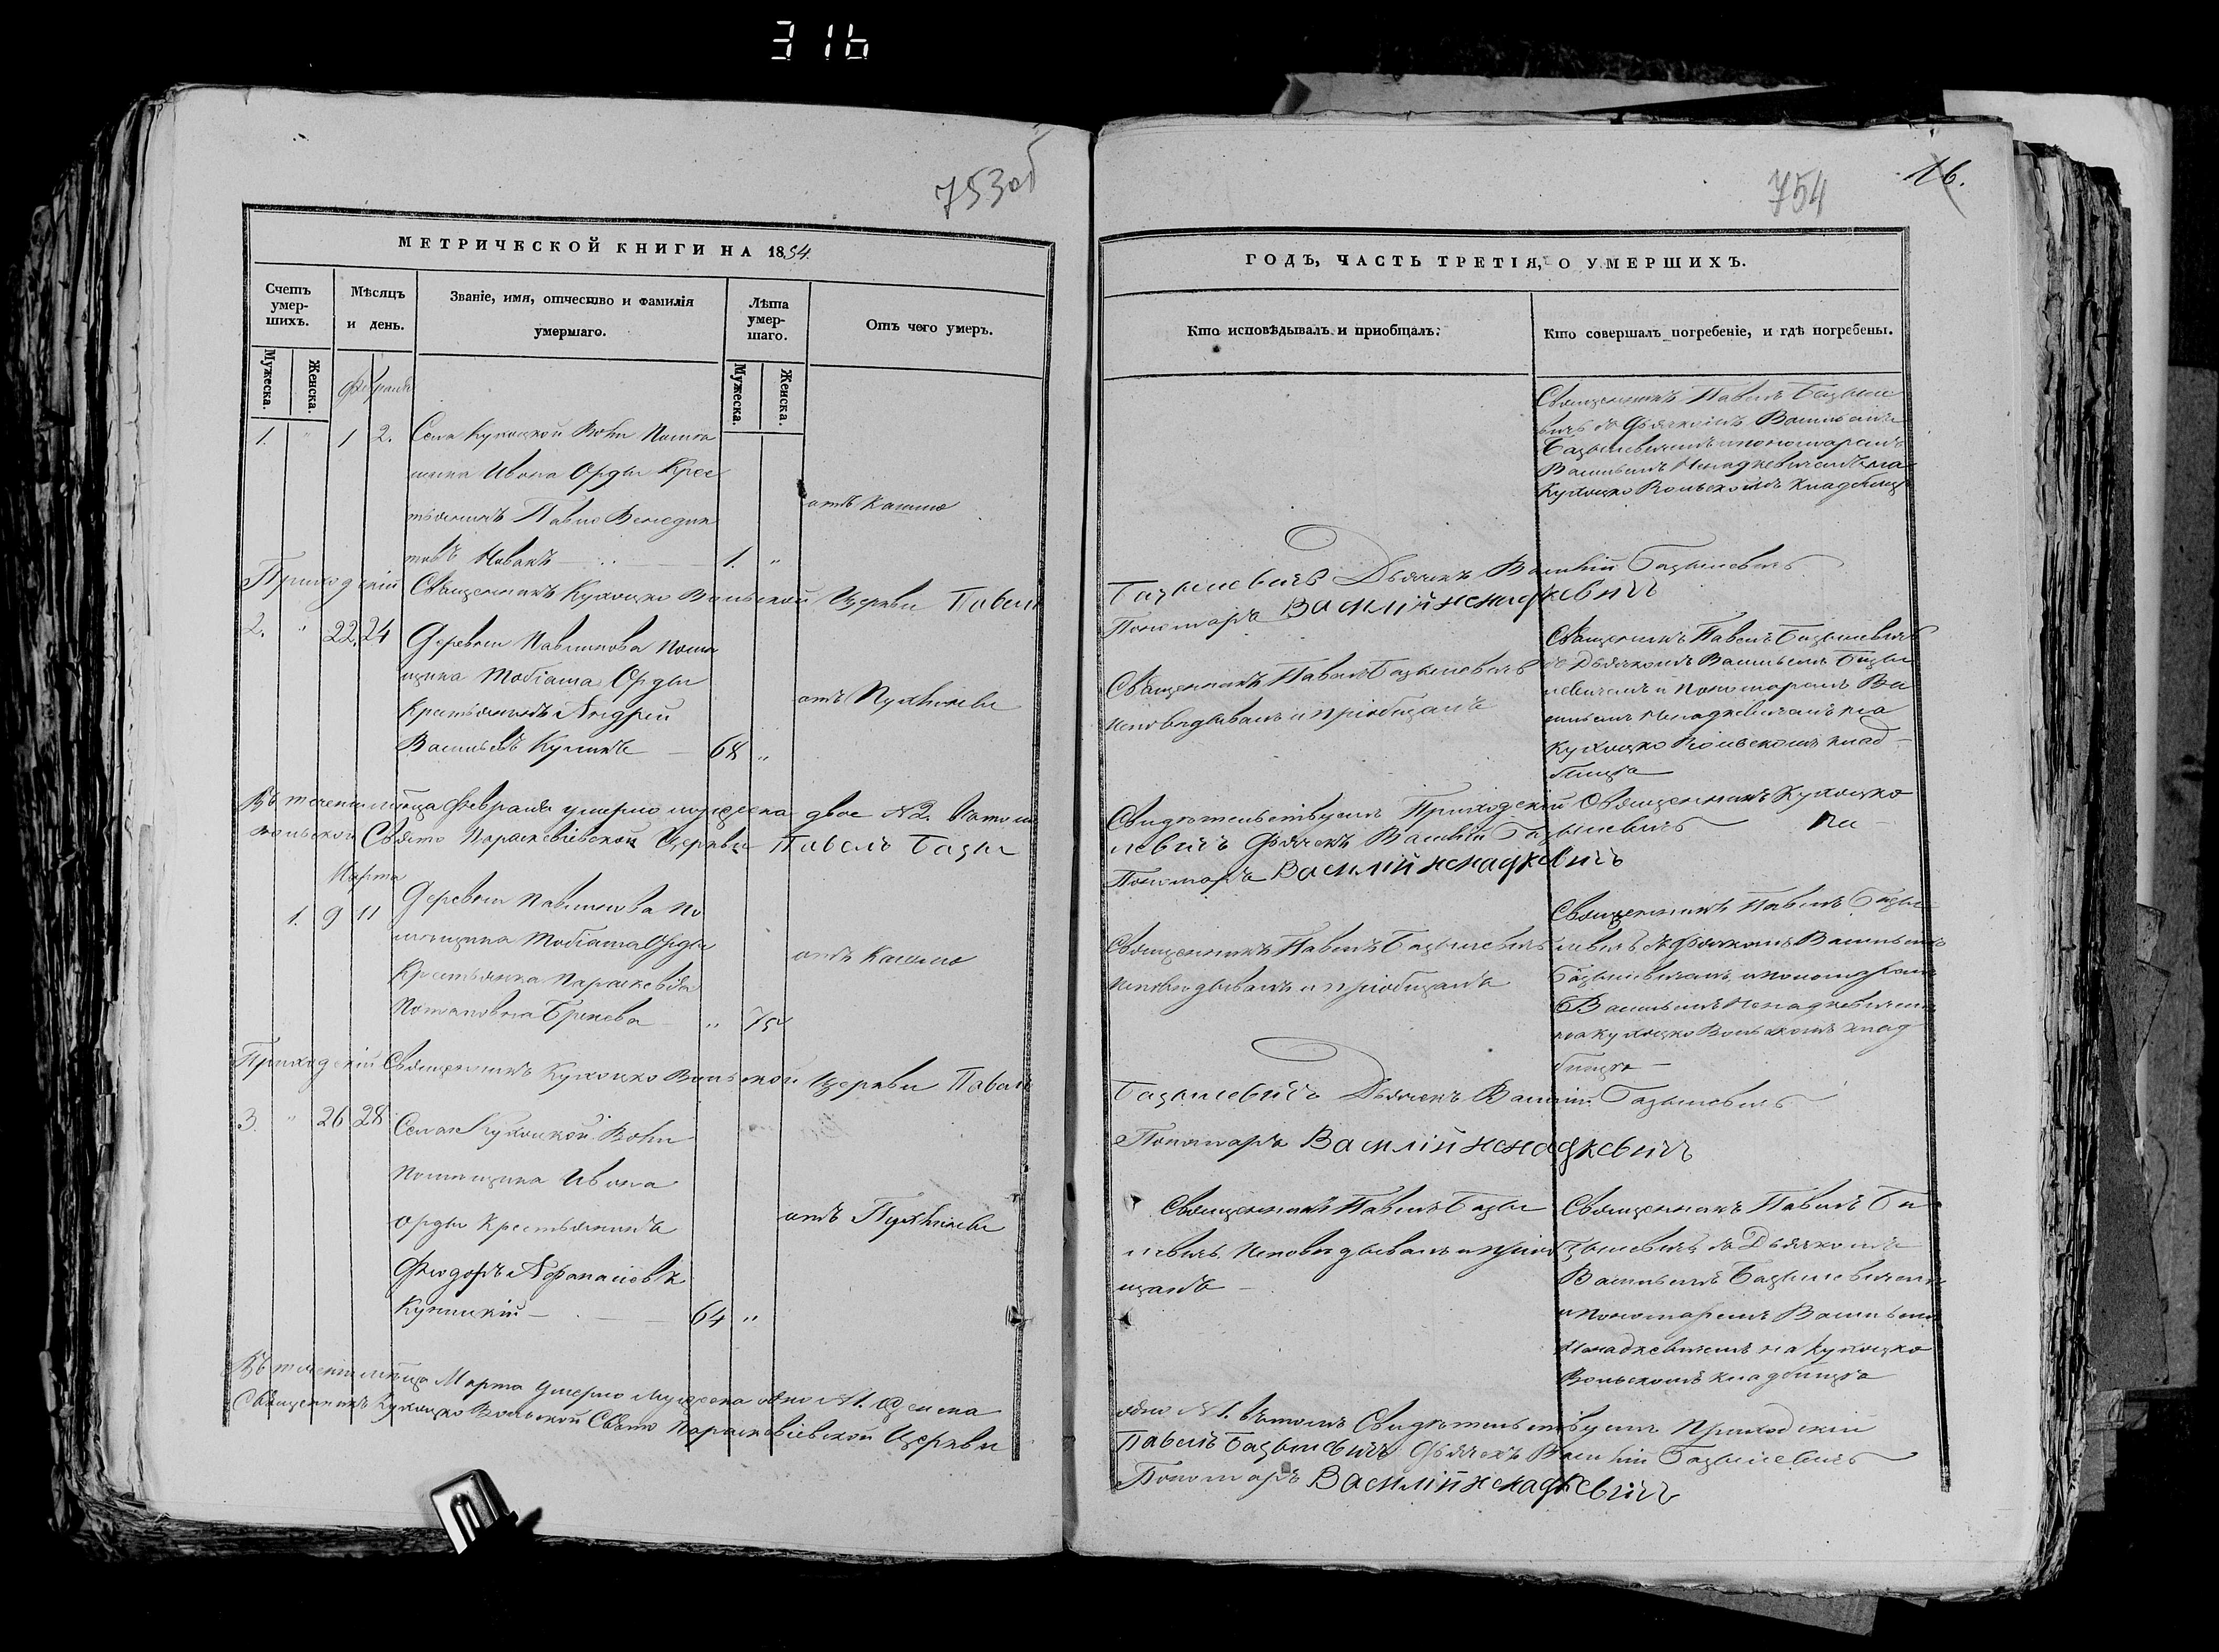 316
753об
МЕТРИЧЕСКОЙ КНИГИ НА 1854.
Счетъ умер-шихъ.
Мѣсяцъ и день.
Званіе, имя, отчество и фамилія умершаго.
Лѣта умер-шаго.
Отъ чего умеръ.
Мужеска.
Женска.
Мужеска.
Женска.
Февраль
1. " 1 2. Села Кухоцкой Воли помѣ
щика Ивана Орды Крес
тьянинъ Павло Венедик
товъ Новакъ 1. "
отъ кашлю
Приходскій Священникъ Кухоцко Вольской Церкви Павелъ
2. " 22 24 Деревни Павлинова помѣ
щика Тобіаша Орды
Крестьянинъ Андрей
Васильевъ Куликъ 68 "
отъ Пухлины
Въ теченіи мѣсяца Февраля умерло мужеска двое №2. въ томъ
вольской Свято Параскевіевской Церкви Павелъ Базы
Марта
1. 9 11 Деревни Павлинова по
мѣщика Тобіаша Орды
Крестьянка Параскева
Потаповна " 75
отъ кашлю
Приходскій Священникъ Кухоцко Вольской Церкви Павелъ
3. " 26 28 Села Кухоцкой Воли
помѣщика Ивана
Орды Крестьянинъ
Феодоръ Афанасіевъ
64 "
отъ Пухлины
Въ теченіи мѣсяца Марта умерло мужеска одно №1. Женска
Священникъ Кухоцко Вольской Свято Параскевіевской Церкви
754
16.
ГОДЪ, ЧАСТЬ ТРЕТІЯ, О УМЕРШИХЪ.
Кто исповѣдывалъ и приобщалъ:
Кто совершалъ погребеніе, и гдѣ погребены.
Священникъ Павелъ Базыле
вичъ съ Дьячкомъ Васильемъ
Базылевичемъ и пономаремъ
Васильемъ Ненадкевичемъ на
Кухоцко Вольскомъ кладбищѣ
Базылевичъ Дьячекъ Василій Базылевичъ
Пономарь Василій Ненадкевичъ
Священникъ Павелъ Базылевичъ
исповѣдывалъ и пріобщалъ
Священникъ Павелъ Базылевичъ
съ Дьячкомъ Васильемъ Базы
левичемъ и Пономаремъ Ва
сильемъ Ненадкевичемъ на
Кухоцко Вольскомъ клад
бищѣ
Свидѣтельствуемъ Приходскій Священникъ Кухоцко
левичъ Дьячекъ Василій Базылевичъ
Пономарь Василій Ненадкевичъ
Священникъ Павелъ Базылевичъ
исповѣдывалъ и пріобщалъ
Священникъ Павелъ Базы
левичъ съ Дьячкомъ Васильемъ
Базылевичемъ и пономаремъ
Васильемъ Ненадкевичемъ
на Кухоцко Вольскомъ клад
бищѣ
Базылевичъ Дьячекъ Василій Базылевичъ
Пономарь Василій Ненадкевичъ
Священникъ Павелъ Базы
левичъ исповѣдывалъ и пріоб
щалъ
Священникъ Павелъ Ба
зылевичъ съ Дьячкомъ
Васильемъ Базылевичемъ
и пономаремъ Васильемъ
Ненадкевичемъ на Кухоцко
Вольскомъ кладбищѣ
одно №1. въ томъ Свидѣтельствуемъ Приходскій
Павелъ Базылевичъ Дьячекъ Василій Базылевичъ
Пономарь Василій Ненадкевичъ